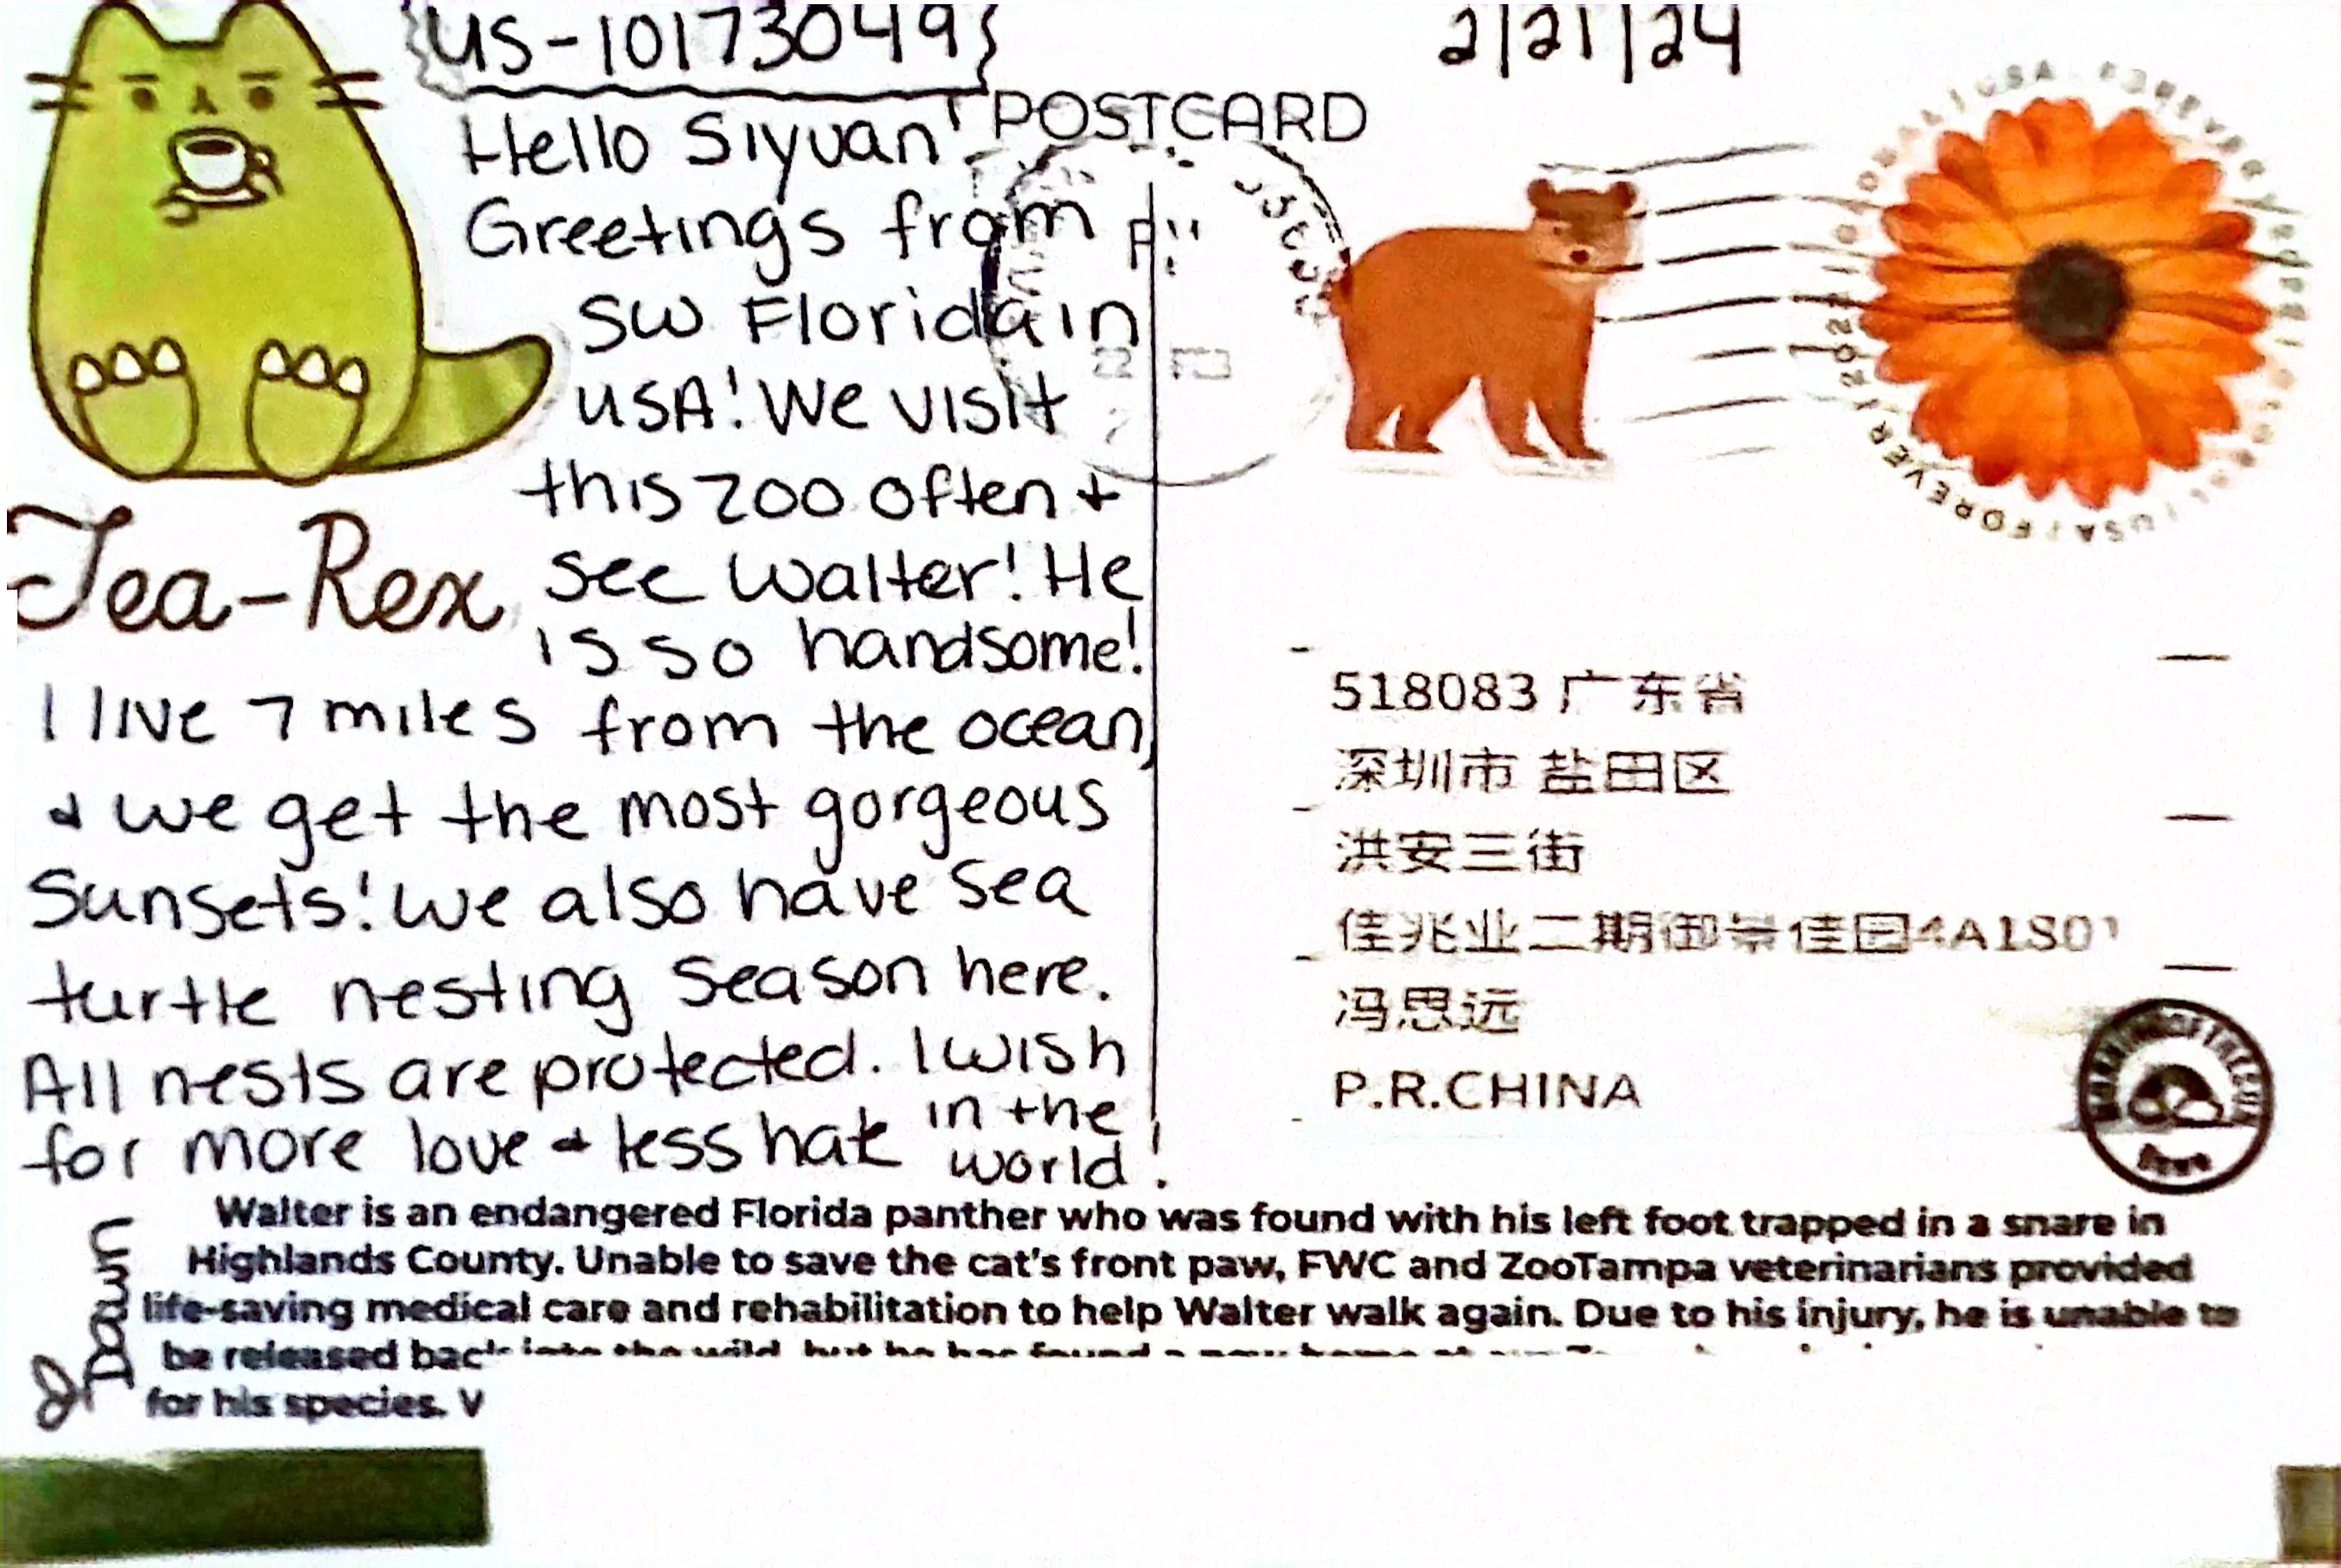 US-10173049
2/21/24
POSTCARD
Hello Siyuan!
Greetings from
SW Florida in
USA! We visit
this zoo often +
see Walter! He
is so handsome!
Tea-Rex
I live 7 miles from the ocean,
+ we get the most gorgeous
Sunsets! We also have sea
turtle nesting season here.
All nests are protected. I wish
for more love + less hate in the
world!
Dawn
USA FOREVER
FOREVER 2022
USA FOREVER
518083 广东省
深圳市 盐田区
洪安三街
佳兆业二期御景佳园4A1S01
冯思远
P.R.CHINA
Walter is an endangered Florida panther who was found with his left foot trapped in a snare in
Highlands County. Unable to save the cat's front paw, FWC and ZooTampa veterinarians provided
life-saving medical care and rehabilitation to help Walter walk again. Due to his injury, he is unable to
be released back into the wild, but he has found a new home at our
for his species. V